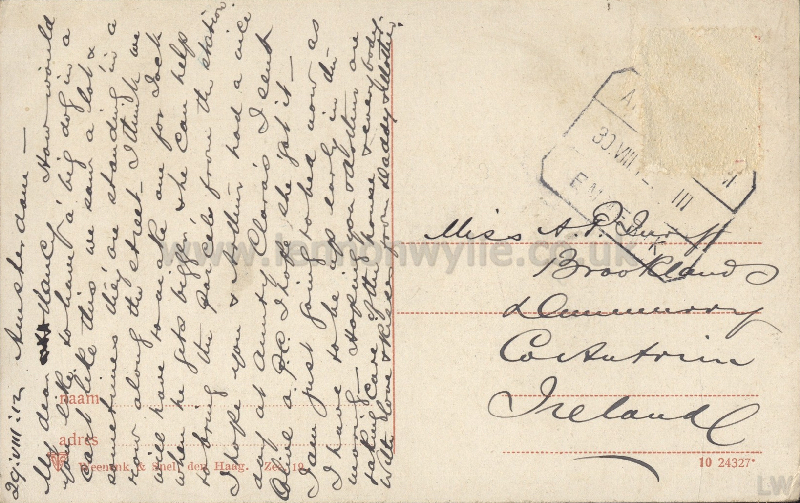 29.VIII.12 Amsterdam —
My dear Nancy How would
you like to have a big dog in a
cart like this we saw a lot &
sometimes they're standing in a
row along the street – I think we
will have to make one for Jack
when he gets bigger & he can help
to bring the parcels from the station
I hope you & Arthur had a nice
day at Aunty Clara's I sent
Olive a P.C. I hope she got it —
I am just going to bed now as
I have to be up early in the
morning – Hoping you & Arthur are
taking care of the house & everybody
With love & kisses from Daddy & Mother
Miss A. P.
Brooklands
Dunmurry
Co Antrim
Ireland
30 VIII
III
naam
adres
Weenenk & Snel, den Haag. Zee 19
10 24327*
www.lennonwylie.co.uk
LW